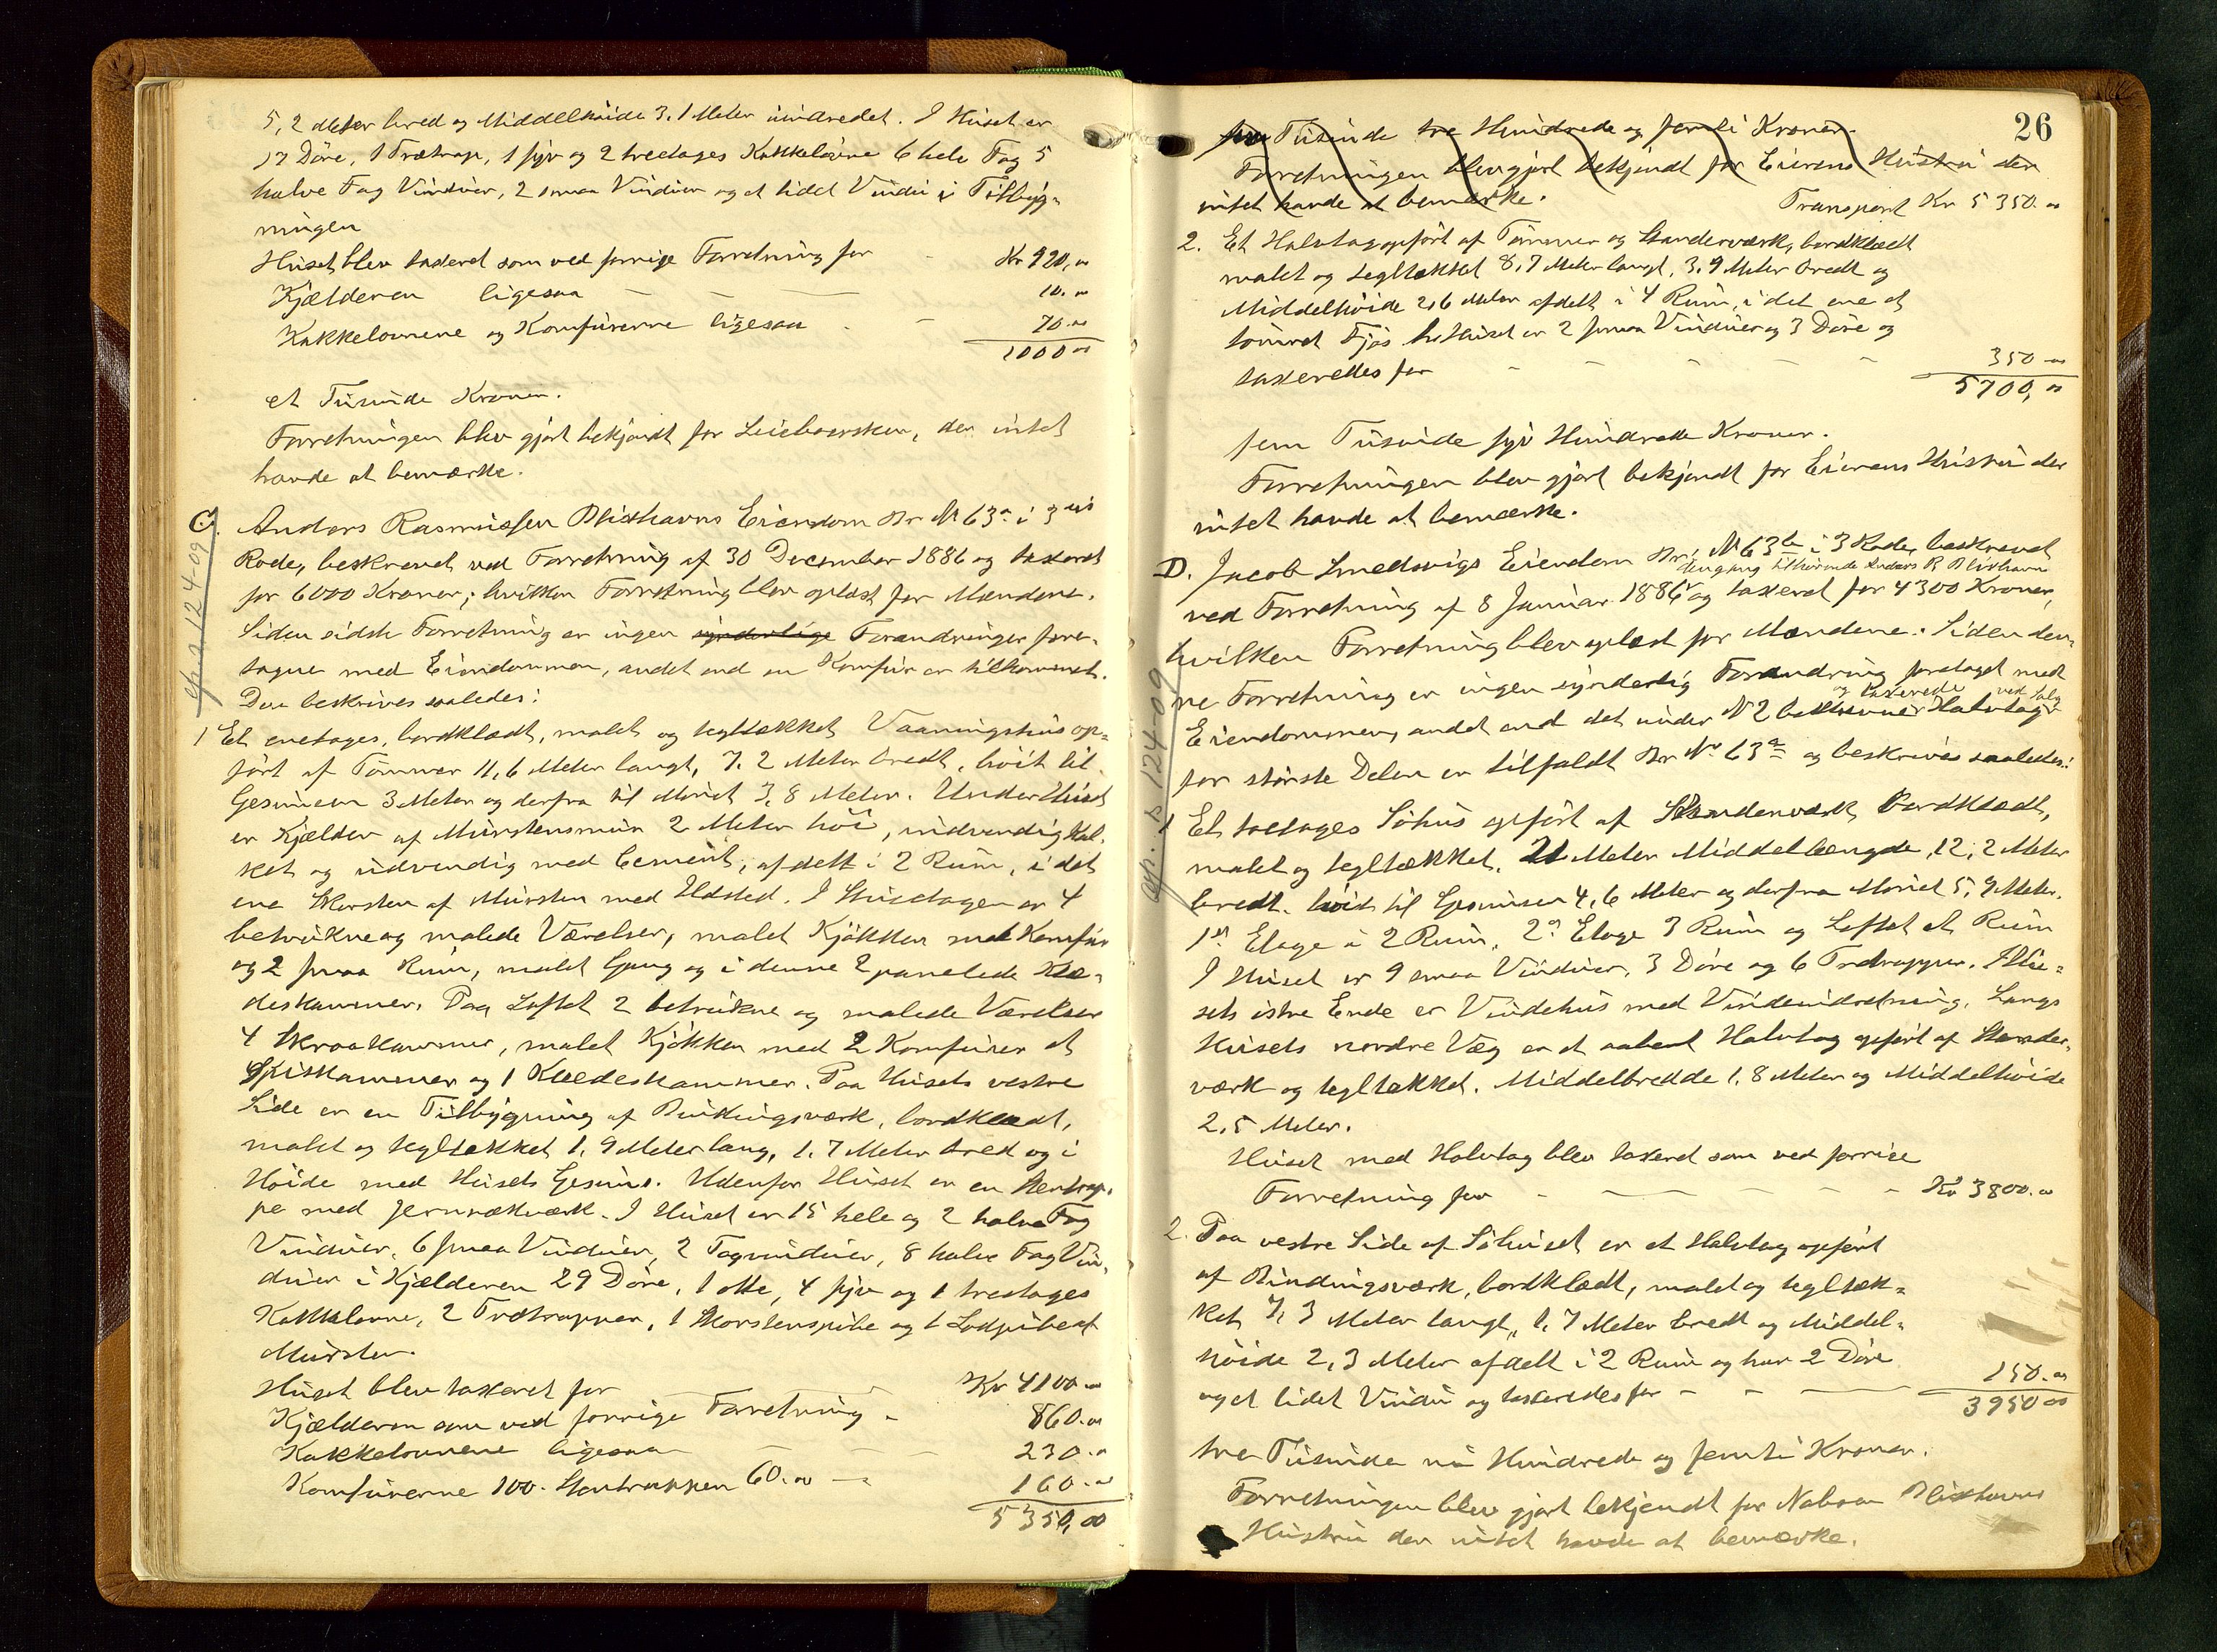 5,2 Meter bred og Middelhöide 3,1 Meter inidredet. I Huset er
17 Döre, 1 Trætrap, 1 syv og 2 treetages Kakkelovne 6 hele Fag 5
halve Fag Vinduer, 2 smaa Vinduer og et lidet Vindu i Tilbyg-
ningen
Huset blev taxeret som ved forrige Forretning for - Kr 920,00
Kjælderen ligesaa - - - 10.00
Kakkelovnene og Komfurerne ligesaa - - 70.00
1000 00
et Tusinde Kroner.
Forretningen blev gjort bekjendt for Leieboersken, der intet
havde at bemærke.
C. Anders Rasmussen Blixhavns Eiendom Br № 63a i 3die
Rode, beskrevet ved Forretning af 30 December 1886 og taxeret
for 6000 Kroner; hvilken Forretning blev oplæst for Mændene.
Siden sidste Forretning er ingen synderlige Forandringer fore-
tagne med Eiendommen, andet end en Komfur er tilkommet.
Den beskrives saaledes:
1 Et enetages, bordklædt, malet og tegltækket Vaaningshus op-
fört af Tömmer 11,6 Meter langt, 7,2 Meter bredt, höit til
Gesimsen 3 Meter og derfra til Mönet 3,8 Meter. Under Huset
er Kjælder af Murstensmur 2 Meter höi, indvendig kal-
ket og udvendig med Cement, afdelt i 2 Rum, i det
ene Skorsten af Mursten med Ildsted. I Stuetagen er 4
betrukne og malede Værelser, malet Kjökken med Komfur
og 2 smaa Rum, malet Gang og i denne 2 panelede Klæ-
deskammer. Paa Loftet 2 betrukne og malede Værelser
4 Skraakammer, malet Kjökken med 2 Komfurer et
Spiskammer og 1 Klædeskammer. Paa Husets vestre
Side er en Tilbygning af Bindingsværk, bordklædt,
malet og tegltækket 1,9 Meter lang, 1,7 Meter bred og i
Höide med Husets Gesims. Udenfor Huset er en Stentrap-
pe med Jernrækværk. I Huset er 15 hele og 2 halve Fag
Vinduer, 6 smaa Vinduer, 2 Tagvinduer, 8 halve Fag Vin-
duer i Kjælderen 29 Döre, 1 otte, 4 syv og 1 treetages
Kakkelovne, 2 Trætrapper, 1 Skorstenspibe og 1 Lodpibe af
Mursten.
Huset blev taxeret for Kr 4100 00
Kjælderen som ved forrige Forretning - 860.00
Kakkelovnene ligesaa - - - 230.00
Komfurerne 100. Stentrappen 60.00 - 160.00
5350,00
26
fem Tusinde tre Hundrede og femti Kroner.
Forretningen blev gjort bekjendt for Eierens Hustru der
intet havde at bemærke.
Transport Kr 5350.00
2. Et Halvtag opfört af Tömmer og Standerværk, bordklædt
malet og tegltækket 8,7 Meter langt, 3,9 Meter bredt og
Middelhöide 2,6 Meter afdelt i 4 Rum, i det ene et
tömret Fjös. I Huset er 2 smaa Vinduer og 3 Döre og
taxeredes for - - - - - 350 00
5700,00
fem Tusinde syv Hundrede Kroner.
Forretningen blev gjort bekjendt for Eierens Hustru der
intet havde at bemærke.
D. Jacob Smedsvigs Eiendom Br. № 63b i 3 Rode, beskrevet
dengang tilhörende Anders R Blixhavn
ved Forretning af 8 Januar 1886 og taxeret for 4300 Kroner,
hvilken Forretning blev oplæst for Mændene. Siden den-
ne Forretning er ingen synderlig Forandring foretaget med
og taxerede ved Salg
Eiendommen, andet end det under № 2 beskrevne Halvtag
for störste Delen er tilfaldt Br № 63a og beskrives saaledes:
1 Et toetages Söhus opfört af Standerværk, bordklædt,
malet og tegltækket, 21 Meter Middellængde, 12,2 Meter
bredt, höit til Gesimsen 4,6 Meter og derfra Mönet 5,9 Meter.
1ste Etage i 2 Rum, 2den Etage 3 Rum og Loftet et Rum
I Huset er 9 smaa Vinduer, 3 Döre og 6 Trætrapper. I Hu-
sets östre Ende er Vindehus med Vindeindretning. Langs
Husets nordre Væg er et aabent Halvtag opfört af Stander-
værk og tegltækket. Middelbredde 1,8 Meter og Middelhöide
2,5 Meter.
Huset med Halvtag blev taxeret som ved forrige
Forretning for - - - - - Kr 3800.00
2. Paa vestre Side af Söhuset er et Halvtag opfört
af Bindingsværk, bordklædt, malet og tegltæk-
ket 7,3 Meter langt, 1,7 Meter bredt og Middel-
höide 2,3 Meter afdelt i 2 Rum og har 2 Döre
og et lidet Vindu og taxeredes for - - - 150.00
3950 00
tre Tusinde ni Hundrede og femti Kroner.
Forretningen blev gjort bekjendt for Naboen Blixhavns
Hustru der intet havde at bemærke.